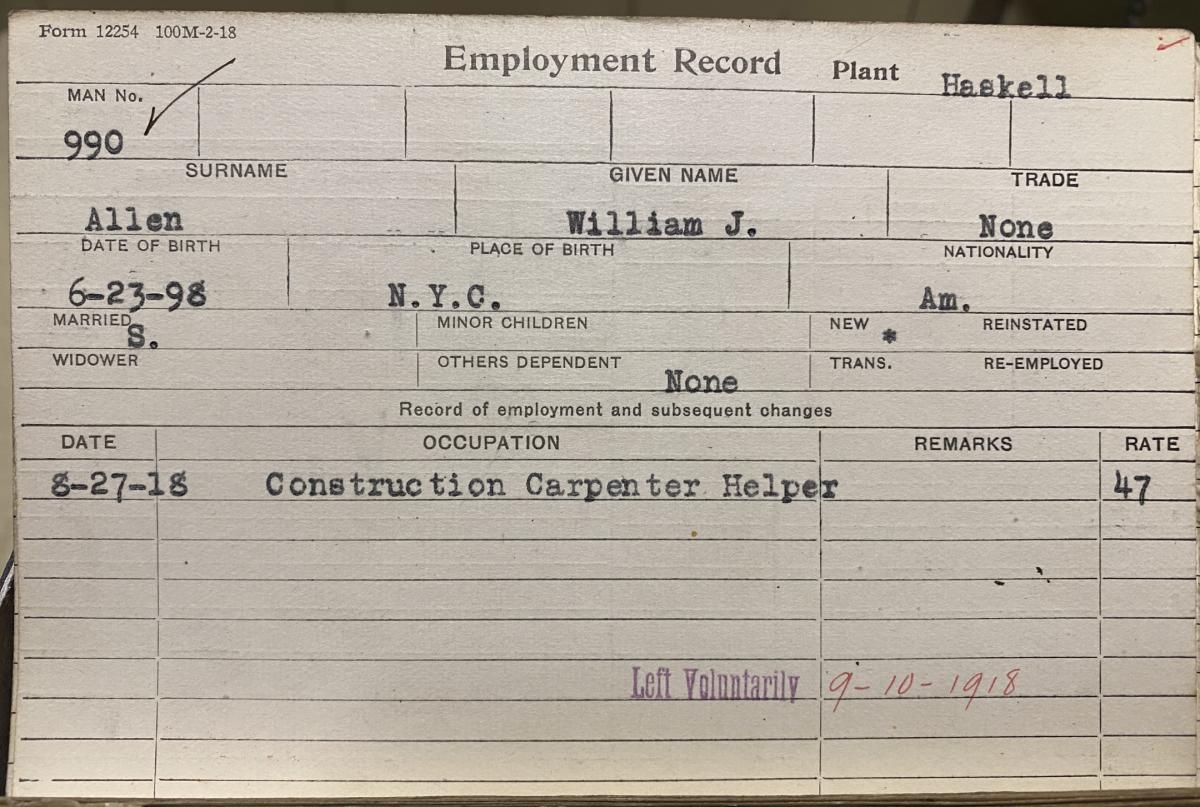 Form 12254 100M-2-18
Employment Record Plant Haskell
MAN No.
990
SURNAME GIVEN NAME TRADE
Allen William J. None
DATE OF BIRTH PLACE OF BIRTH NATIONALITY
6-23-98 N.Y.C. Am.
MARRIED S. MINOR CHILDREN NEW * REINSTATED
WIDOWER OTHERS DEPENDENT None TRANS. RE-EMPLOYED
Record of employment and subsequent changes
DATE OCCUPATION REMARKS RATE
8-27-18 Construction Carpenter Helper 47
Left Voluntarily 9-10-1918